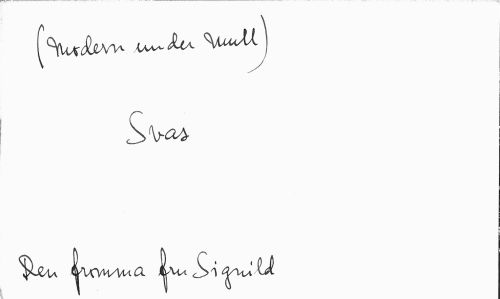 (Modern under mull)
Svas
Den fromma fru Signild